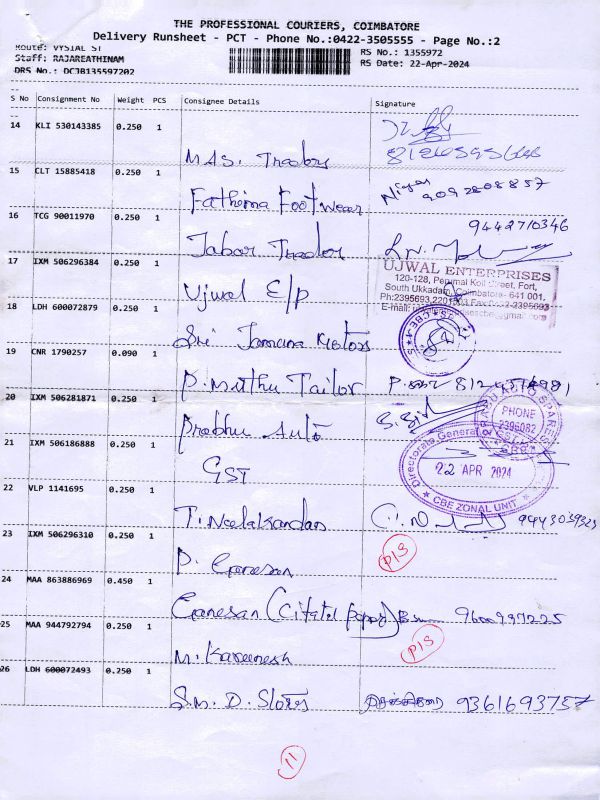 THE PROFESSIONAL COURIERS, COIMBATORE
Delivery Runsheet - PCT - Phone No.:0422-3505555 - Page No.:2
Route: VYSIAL ST
Staff: RAJAREATHINAM
DRS No.: DCJB135597202
RS No.: 1355972
RS Date: 22-Apr-2024
S No Consignment No Weight PCS Consignee Details Signature
14 KLI 530143385 0.250 1
M.A.S. Traders
15 CLT 15885418 0.250 1
Fathima Footwear 9092808857
16 TCG 90011970 0.250 1
Jabar Trador 9442710346
17 IXM 506296384 0.250 1
Ujwal E/p
UJWAL ENTERPRISES
120-128, Perumal Koil Street, Fort,
South Ukkadam, Coimbatore- 641 001.
18 LDH 600072879 0.250 1
Sri Jamuna Motors
19 CNR 1790257 0.090 1
P. Muthu Tailor
20 IXM 506281871 0.250 1
Prabhu Auto
PRABHU AUTO SPARES
PHONE
2396082
21 IXM 506186888 0.250 1
GST
Directorate General
22 APR 2024
CBE ZONAL UNIT
22 VLP 1141695 0.250 1
T. Neelakandan
23 IXM 506296310 0.250 1
P. Ganesan P/S
24 MAA 863886969 0.450 1
Ganesan 9600997225
25 MAA 944792794 0.250 1
M. Karunesh P/S
26 LDH 600072493 0.250 1
S.M. D. Stores 9361693757
11